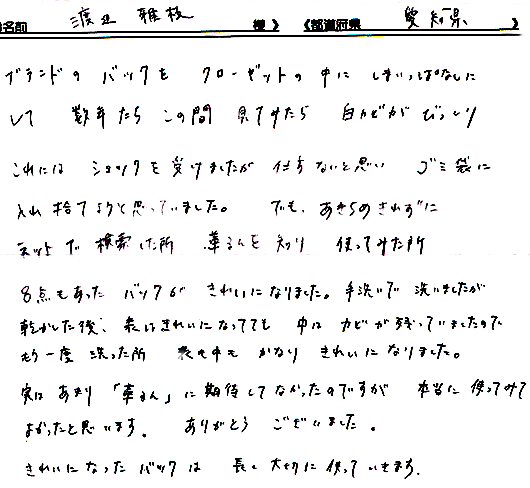 名前 渡辺 雅枝 様 》 《都道府県 愛知県 》
ブランドの バックを クローゼットの 中に しまいっぱなしに
して 数年たち この間 見てみたら 白カビが びっしり
これには ショックを 受けましたが 仕方ないと思い ゴミ袋に
入れ 捨てようと思っていました。 でも、あきらめきれずに
ネットで 検索した所 革るんを 知り 使ってみた所
8点もあった バックが きれいになりました。手洗いで 洗いましたが
乾かした後、表はきれいになってても 中は カビが 残っていましたので
もう一度 洗った所 表も中も かなり きれいに なりました。
実は あまり 「革るん」に 期待してなかったのですが 本当に 使ってみて
よかったと思います。 ありがとう ございました。
きれいになった バックは 長く 大切に 使っていきます。